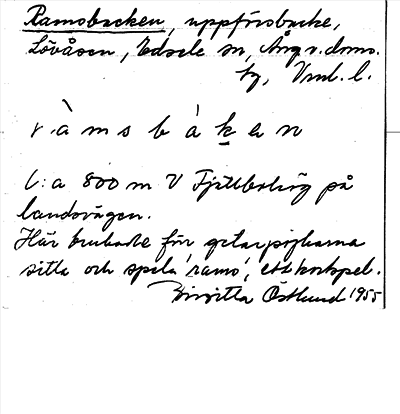 Ramsbacken, uppförsbacke,
Lövåsen, Edsele sn, Ång v. doms.
Vml. l.
r à m s b á k e n
C:a 800 m V Fjällberg på
landsvägen.
Här brukade för getarpojkarna
sitta och spela 'rams', ett kortspel.
Birgitta Östlund 1955